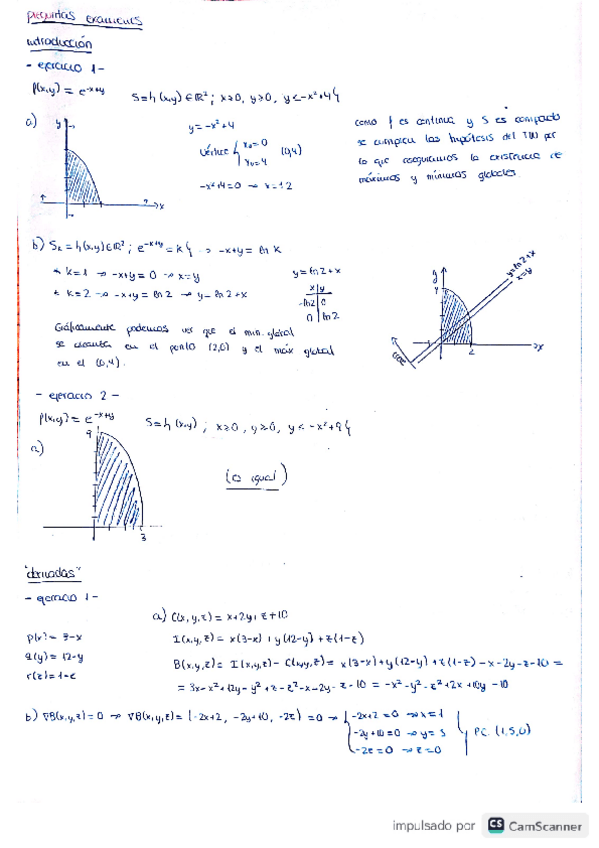 preguntas examenes
introducción
- ejercicio 1 -
f(x,y) = e^-x+y
S = {(x,y) ∈ ℝ²; x≥0, y≥0, y≤-x²+4}
a)
y
x
y = -x²+4
vértice { x₀ = 0
y₀ = 4
(0,4)
-x²+4=0 → x=±2
como f es continua y S es compacto
se cumplen las hipótesis del TW por
lo que aseguramos la existencia de
máximos y mínimos globales.
b) Sₖ = {(x,y) ∈ ℝ²; e^-x+y = k} → -x+y = ln k
* k=1 → -x+y = 0 → x=y
* k=2 → -x+y = ln 2 → y = ln 2+x
y = ln 2 + x
x | y
-ln2 | 0
0 | ln 2
y = ln 2 + x
x = y
y
4
2
x
Gráficamente podemos ver que el min. global
se encuentra en el punto (2,0) y el máx global
en el (0,4).
- ejercicio 2 -
f(x,y) = e^-x+y
S = {(x,y); x≥0, y≥0, y≤-x²+9}
a)
9
3
(lo igual)
"derivadas"
- ejercicio 1 -
a) C(x,y,z) = x+2y+z+10
p(x) = 3-x
q(y) = 12-y
r(z) = 1-z
I(x,y,z) = x(3-x) + y(12-y) + z(1-z)
B(x,y,z) = I(x,y,z) - C(x,y,z) = x(3-x)+y(12-y)+z(1-z)-x-2y-z-10 =
= 3x-x²+12y-y²+z-z²-x-2y-z-10 = -x²-y²-z²+2x+10y-10
b) ∇B(x,y,z)=0 → ∇B(x,y,z) = (-2x+2, -2y+10, -2z) = 0 → { -2x+2=0 → x=1
-2y+10=0 → y=5
-2z=0 → z=0
} P.C. (1,5,0)
impulsado por CS CamScanner